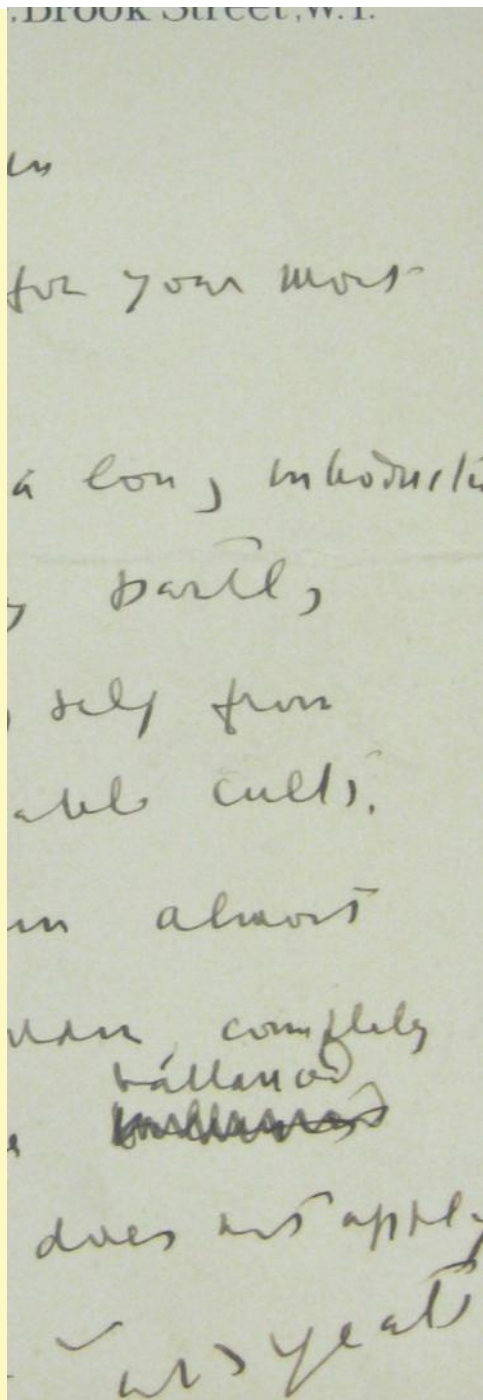 Brook Street, W.1.
for your most
a long introducti
partly
self from
able cults.
in almost
completely
does not apply
W B Yeats